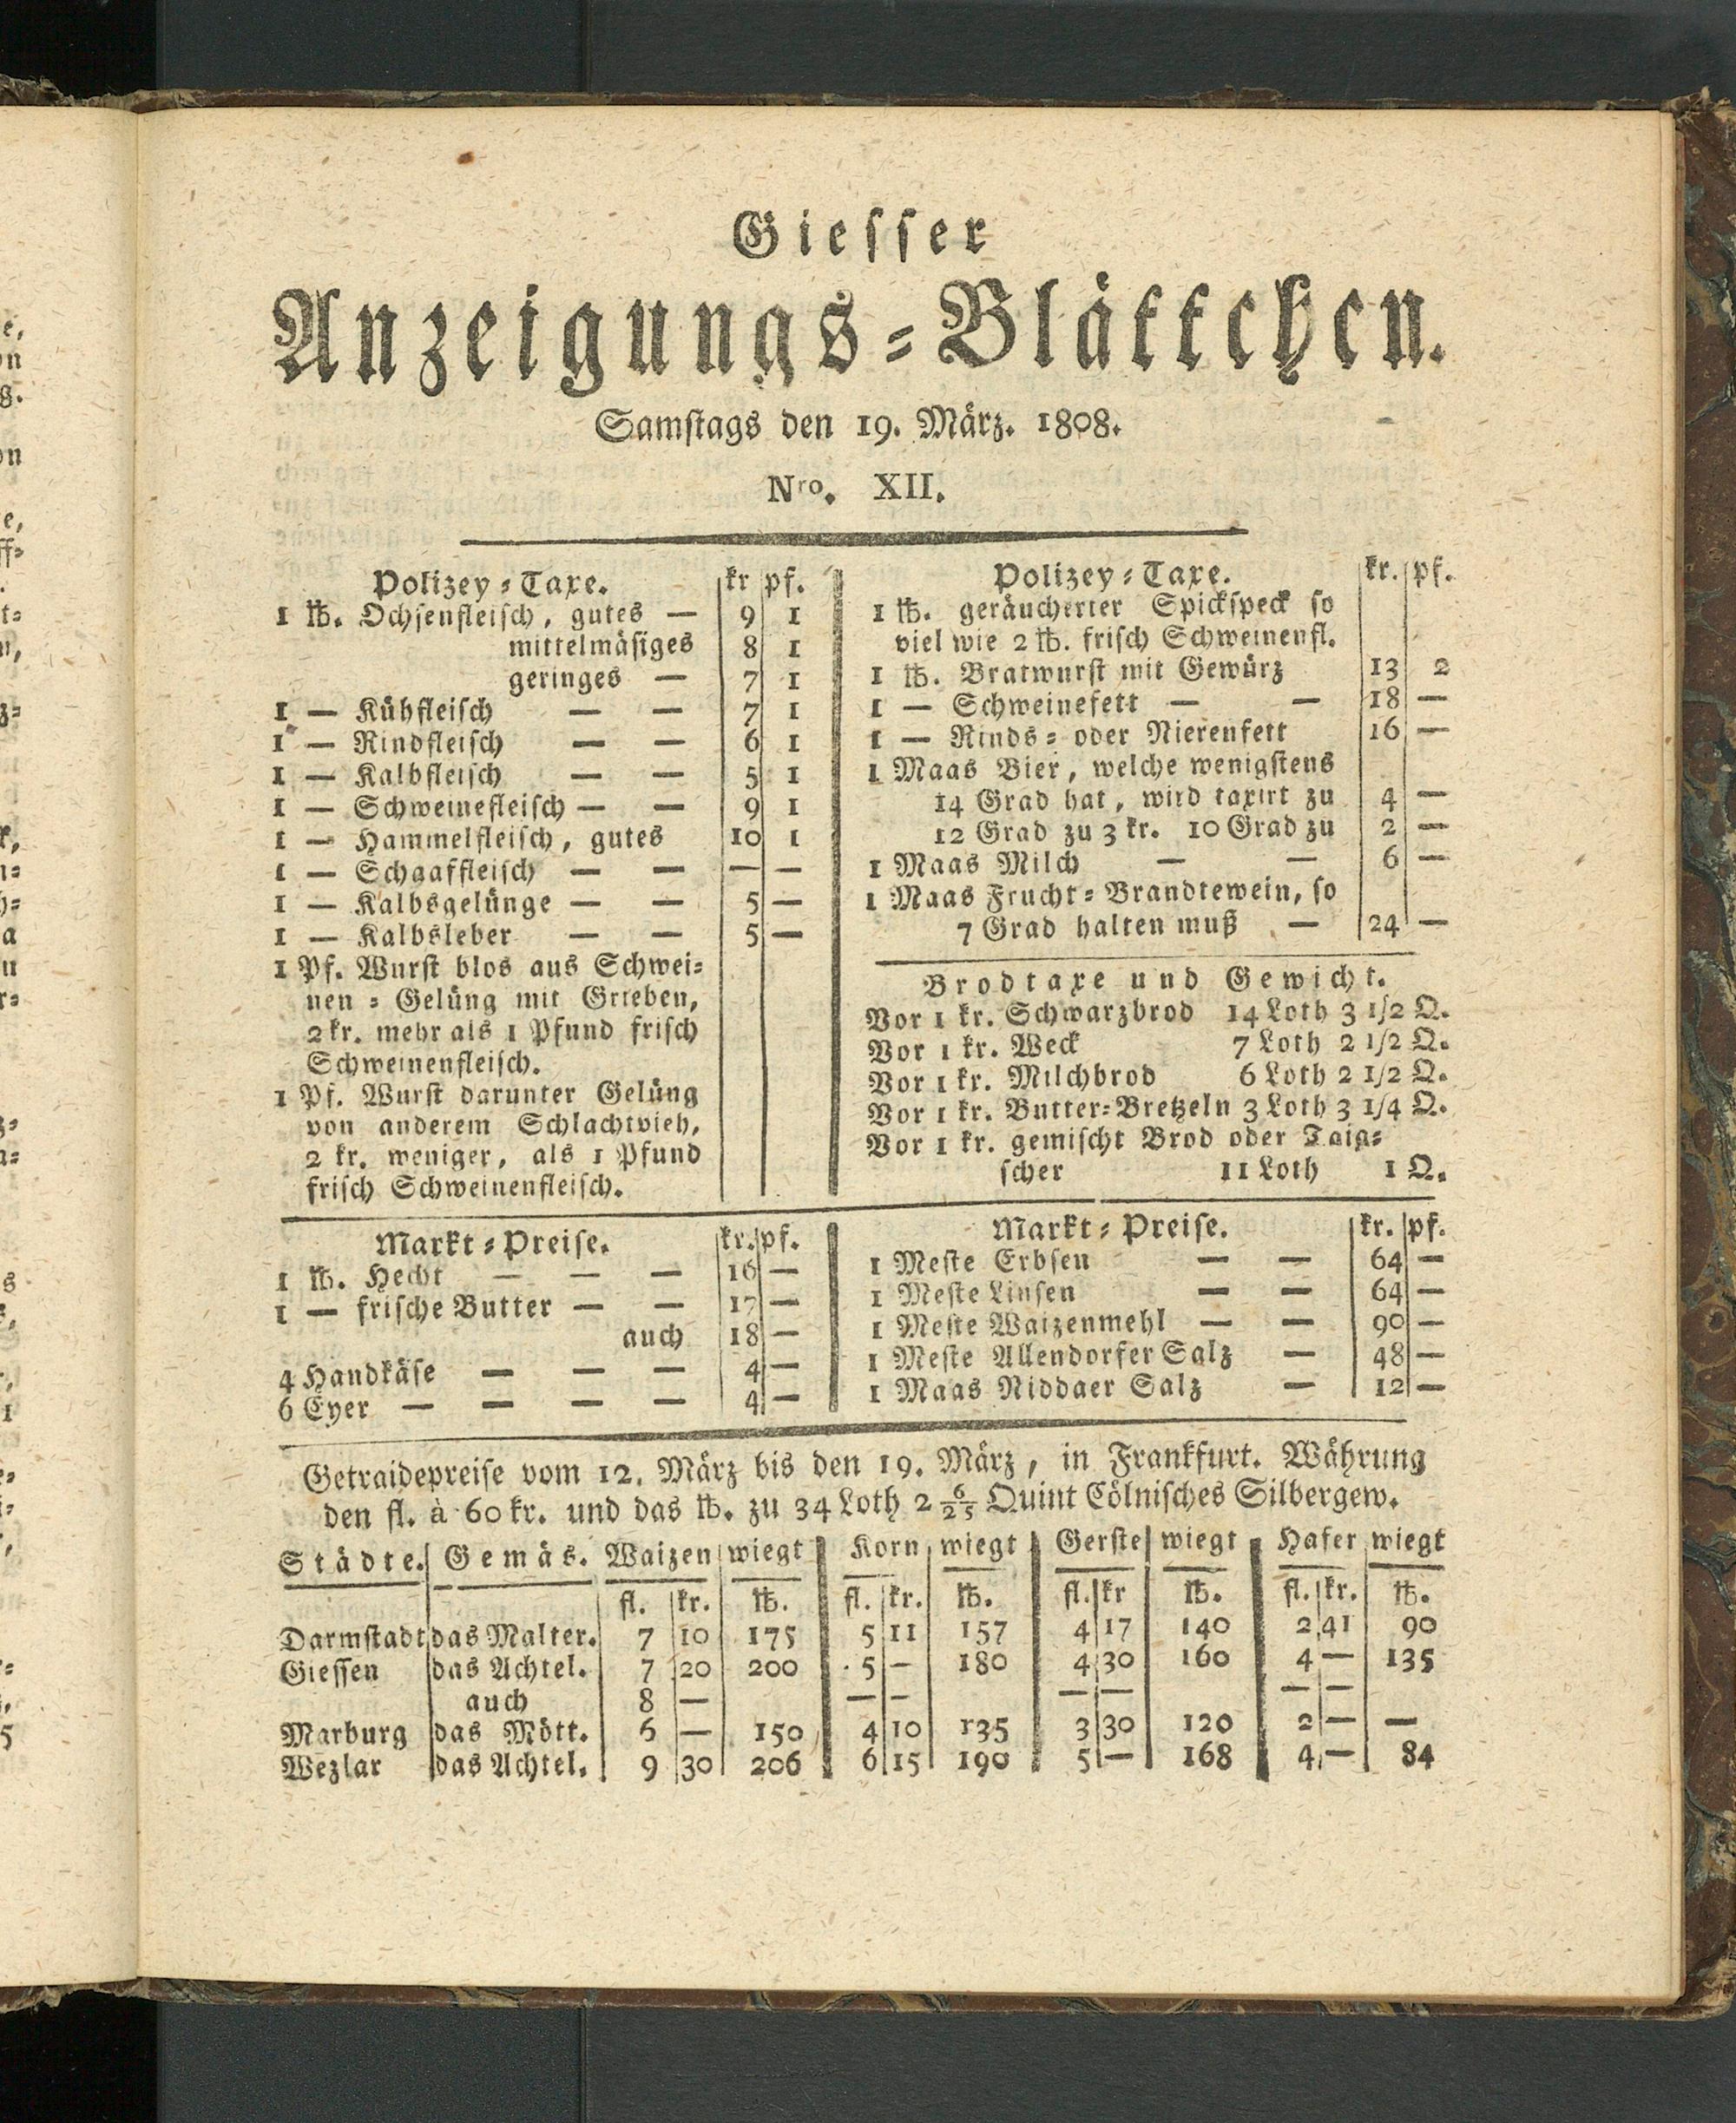 Giesser
Anzeigungs-Blättchen.
Samstags den 19. März. 1808.
Nro. XII.
Polizey-Taxe. kr pf.
1 ℔. Ochsenfleisch, gutes — 9 1
mittelmäsiges 8 1
geringes — 7 1
1 — Kühfleisch — — 7 1
1 — Rindfleisch — — 6 1
1 — Kalbfleisch — — 5 1
1 — Schweinefleisch — — 9 1
1 — Hammelfleisch, gutes 10 1
1 — Schaaffleisch — — — —
1 — Kalbsgelünge — — 5 —
1 — Kalbsleber — — 5 —
1 Pf. Wurst blos aus Schwei-
nen-Gelüng mit Grieben,
2 kr. mehr als 1 Pfund frisch
Schweinenfleisch.
1 Pf. Wurst darunter Gelüng
von anderem Schlachtvieh,
2 kr. weniger, als 1 Pfund
frisch Schweinenfleisch.
Polizey-Taxe. kr. pf.
1 ℔. geräucherter Spickspeck so
viel wie 2 ℔. frisch Schweinenfl.
1 ℔. Bratwurst mit Gewürz 13 2
1 — Schweinefett — — 18 —
1 — Rinds- oder Nierenfett 16 —
1 Maas Bier, welche wenigstens
14 Grad hat, wird taxirt zu 4 —
12 Grad zu 3 kr. 10 Grad zu 2 —
1 Maas Milch — — 6 —
1 Maas Frucht-Brandtewein, so
7 Grad halten muß — 24 —
Brodtaxe und Gewicht.
Vor 1 kr. Schwarzbrod 14 Loth 3 1/2 Q.
Vor 1 kr. Weck 7 Loth 2 1/2 Q.
Vor 1 kr. Milchbrod 6 Loth 2 1/2 Q.
Vor 1 kr. Butter-Bretzeln 3 Loth 3 1/4 Q.
Vor 1 kr. gemischt Brod oder Taig-
scher 11 Loth 1 Q.
Markt-Preise. kr. pf.
1 ℔. Hecht — — — 16 —
1 — frische Butter — — 17 —
auch 18 —
4 Handkäse — — — 4 —
6 Eyer — — — — 4 —
Markt-Preise. kr. pf.
1 Meste Erbsen — — 64 —
1 Meste Linsen — — 64 —
1 Meste Waizenmehl — — 90 —
1 Meste Allendorfer Salz — 48 —
1 Maas Niddaer Salz — 12 —
Getraidepreise vom 12. März bis den 19. März, in Frankfurt. Währung
den fl. à 60 kr. und das ℔. zu 34 Loth 2 6/25 Quint Cölnisches Silbergew.
Städte. Gemäs. Waizen wiegt Korn wiegt Gerste wiegt Hafer wiegt
fl. kr. ℔. fl. kr. ℔. fl. kr ℔. fl. kr. ℔.
Darmstadt das Malter. 7 10 175 5 11 157 4 17 140 2 41 90
Giessen das Achtel. 7 20 200 5 — 180 4 30 160 4 — 135
auch 8 — — — — — — —
Marburg das Mött. 6 — 150 4 10 135 3 30 120 2 — —
Wezlar das Achtel. 9 30 206 6 15 190 5 — 168 4 — 84